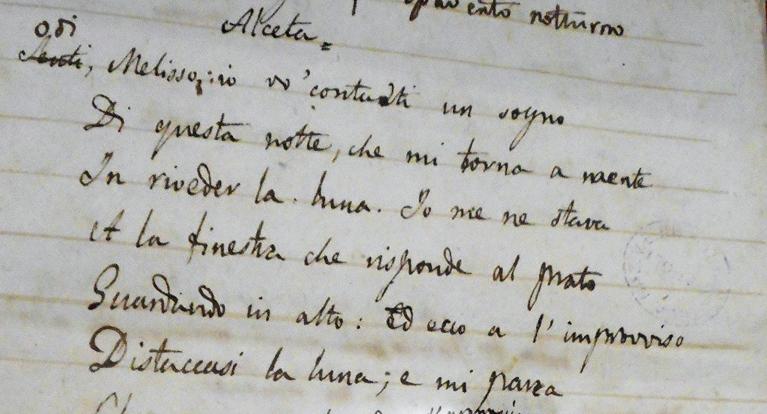 spavento notturno
Alceta.
Odi
Senti, Melisso: io vo' contarti un sogno
Di questa notte, che mi torna a mente
In riveder la luna. Io me ne stava
A la finestra che risponde al prato
Guardando in alto: ed ecco a l'improvviso
Distaccasi la luna; e mi parea